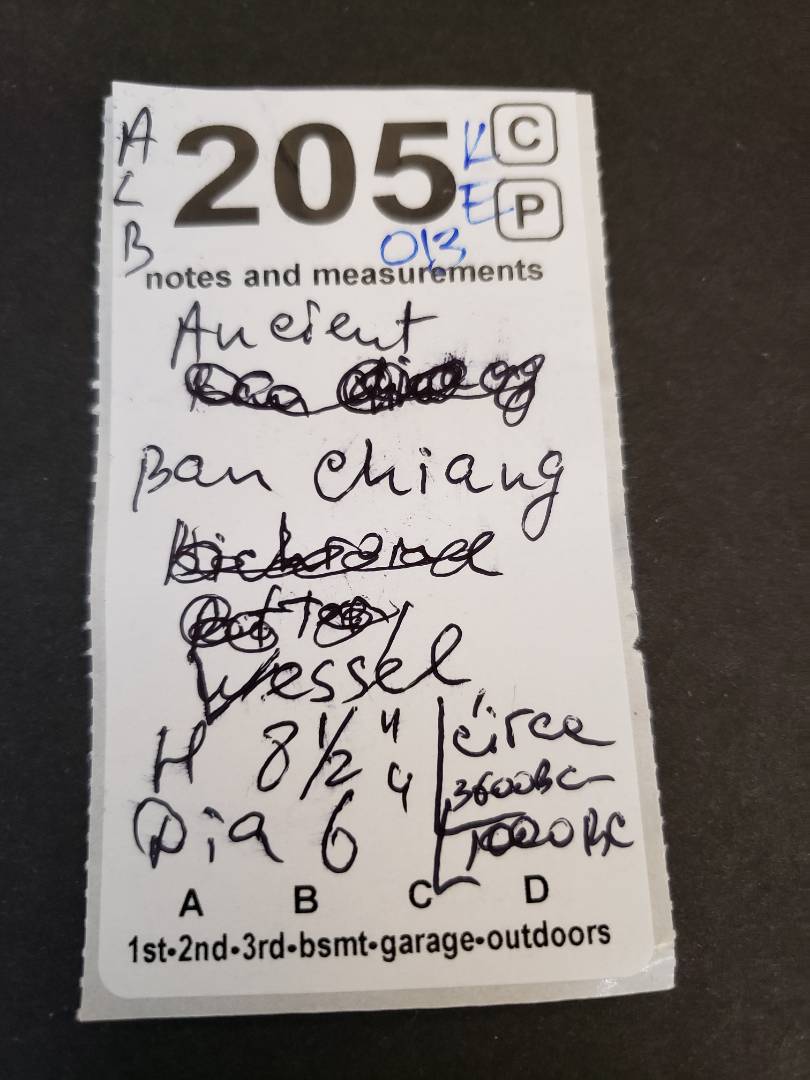 A 205 K C
L E P
B 013
notes and measurements
Ancient
Ban Chiang
Vessel
H 8 1/2 " circa
Dia 6 " 3600BC-
1000BC
A B C D
1st•2nd•3rd•bsmt•garage•outdoors